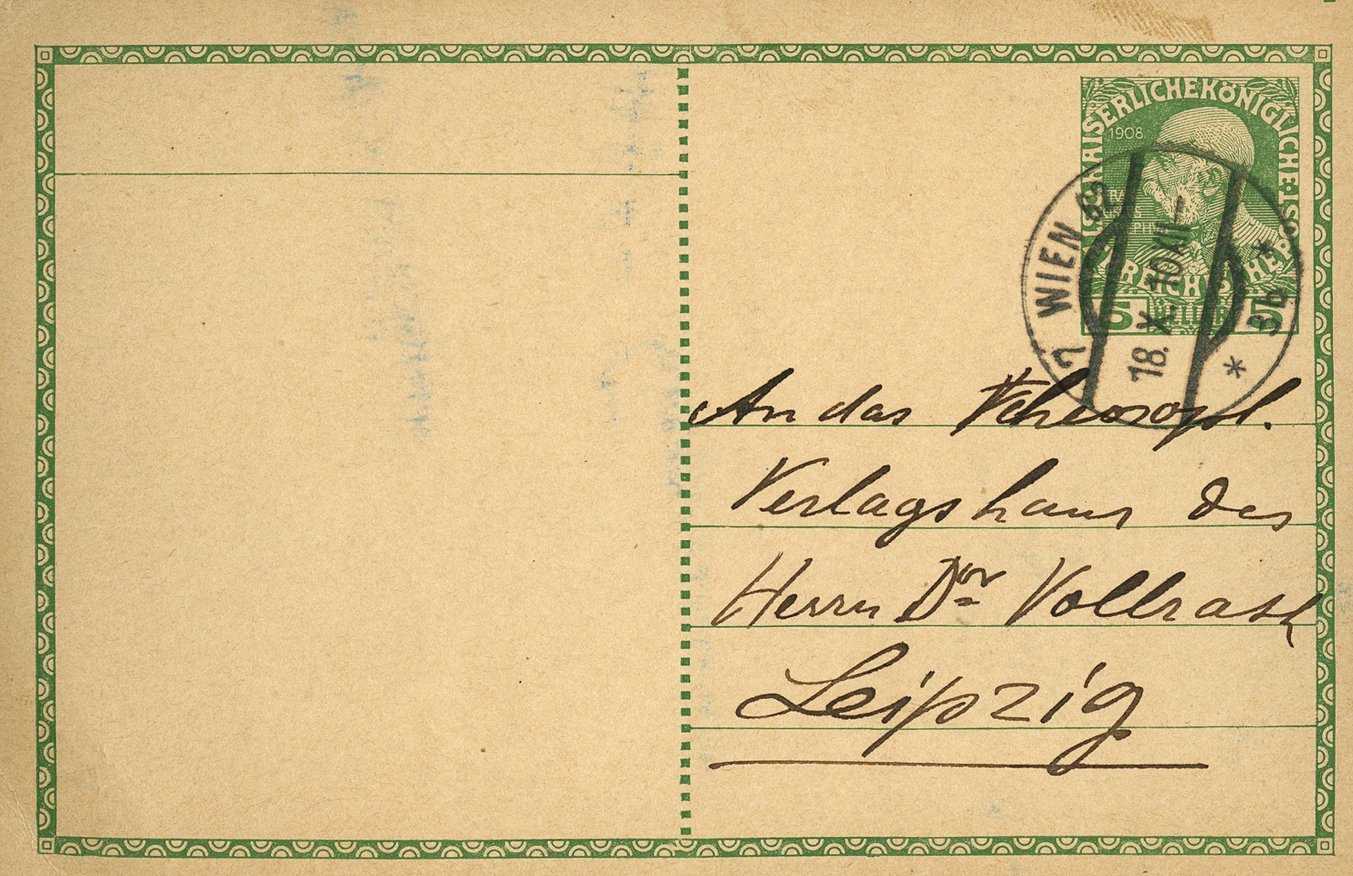 KAISERLICHEKÖNIGLICHE·ÖST
1908
REICHISCHE P
5 HELLER 5
WIEN
18.X. 10 XII-
3b
An das Theosoph.
Verlagshaus des
Herrn Dor Vollrath
Leipzig